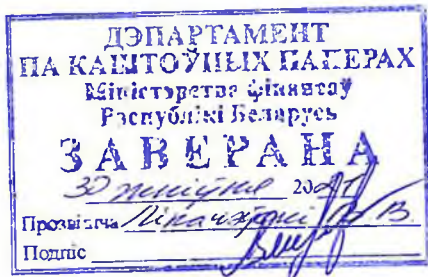 ДЭПАРТАМЕНТ
ПА КАШТОЎНЫХ ПАПЕРАХ
Міністэрства фінансаў
Рэспублікі Беларусь
ЗАВЕРАНА
30 жніўня 20
Прозвішча
Подпіс